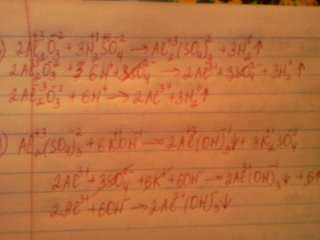 ) 2Al₂⁺³O₃⁻² + 3H₂⁺¹SO₄⁻² → Al₂⁺³(SO₄)₃⁻² + 3H₂↑
2Al₂⁺³O₃⁻² + 6H⁺ + 3SO₄⁻ → 2Al³⁺ + 3SO₄⁻ + 3H₂↑
2Al₂⁻³O₃⁻² + 6H⁺ → 2Al³⁺ + 3H₂↑
) Al₂⁺³(SO₄)₃⁻² + 6KOH → 2Al(OH)₃↓ + 3K₂SO₄
2Al³⁺ + 3SO₄ + 6K⁺ + 6OH → 2Al(OH)₃↓ + 6
2Al³⁺ + 6OH → 2Al(OH)₃↓